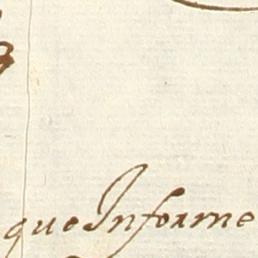 que Informe